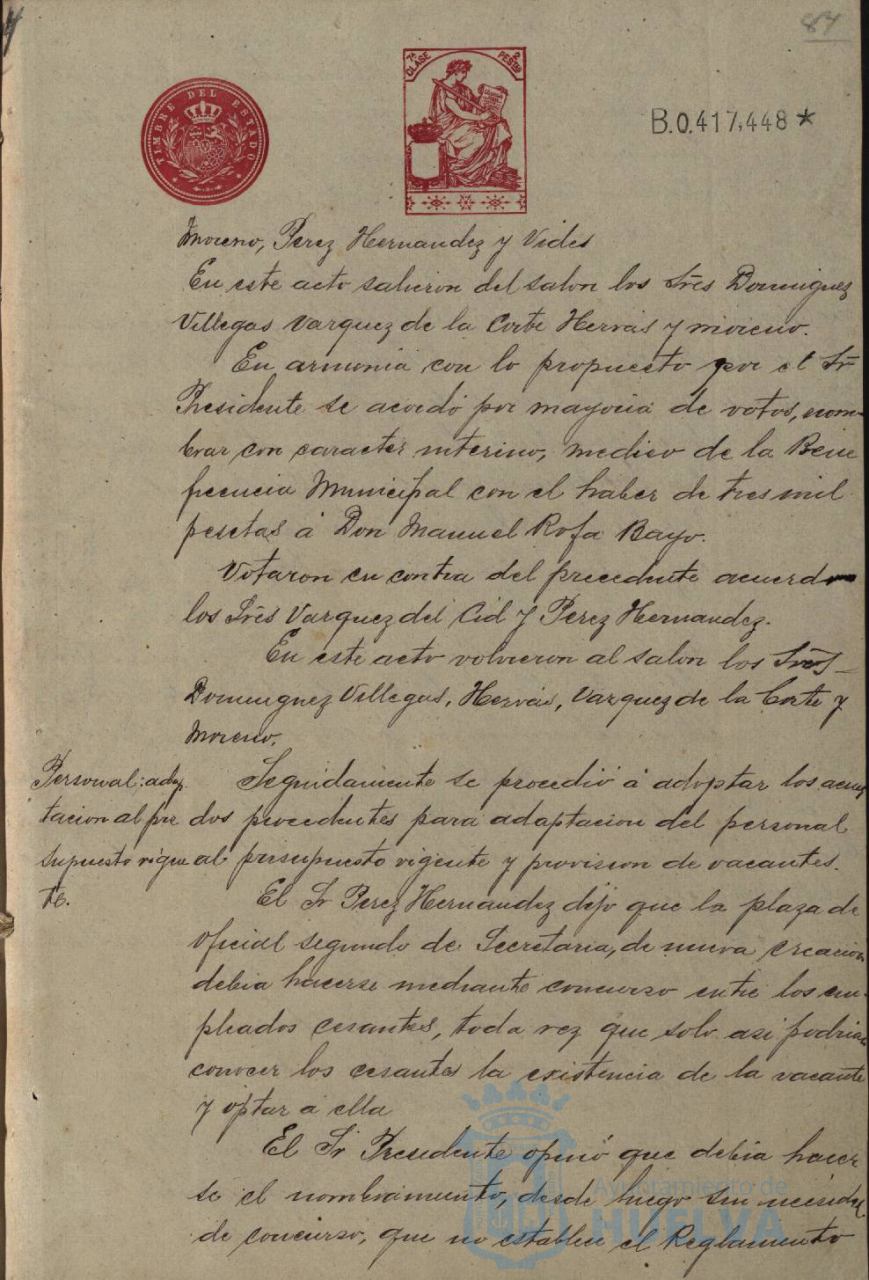 84
TIMBRE DEL ESTADO
7ª CLASE
2 PESTAS
B.0.417,448*
Moreno, Perez Hernandez y Vides
En este acto salieron del salon los Srēs Dominguez
Villegas Varquez de la Corte Hervás y moreno.
En armonia con lo propuesto por el Sr
Presidente se acordó por mayoria de votos, nom-
brar con caracter interino, medico de la Bene
ficencia Municipal con el haber de tres mil
pesetas á Don Manuel Rofa Bayo.
Votaron en contra del precedente acuerdo
los Srēs Varquez del Cid y Perez Hernandez.
En este acto volvieron al salon los Srēs
Dominguez Villegas, Hervás, Varquez de la Corte y
Moreno.
Personal: adap
tacion al pre
supuesto vigen
te.
Seguidamente se procedió á adoptar los acuer
dos procedentes para adaptacion del personal
al presupuesto vigente y provision de vacantes.
El Sr Perez Hernandez dijo que la plaza de
oficial segundo de Secretaria, de nueva creacion
debia hacerse mediante concurso entre los em-
pleados cesantes, toda vez que solo asi podrian
conocer los cesantes la existencia de la vacante
y optar á ella
El Sr Presidente opinó que debia hacer
se el nombramiento, desde luego sin necesidad
de concurso, que no establece el Reglamento
Ayuntamiento de
HUELVA